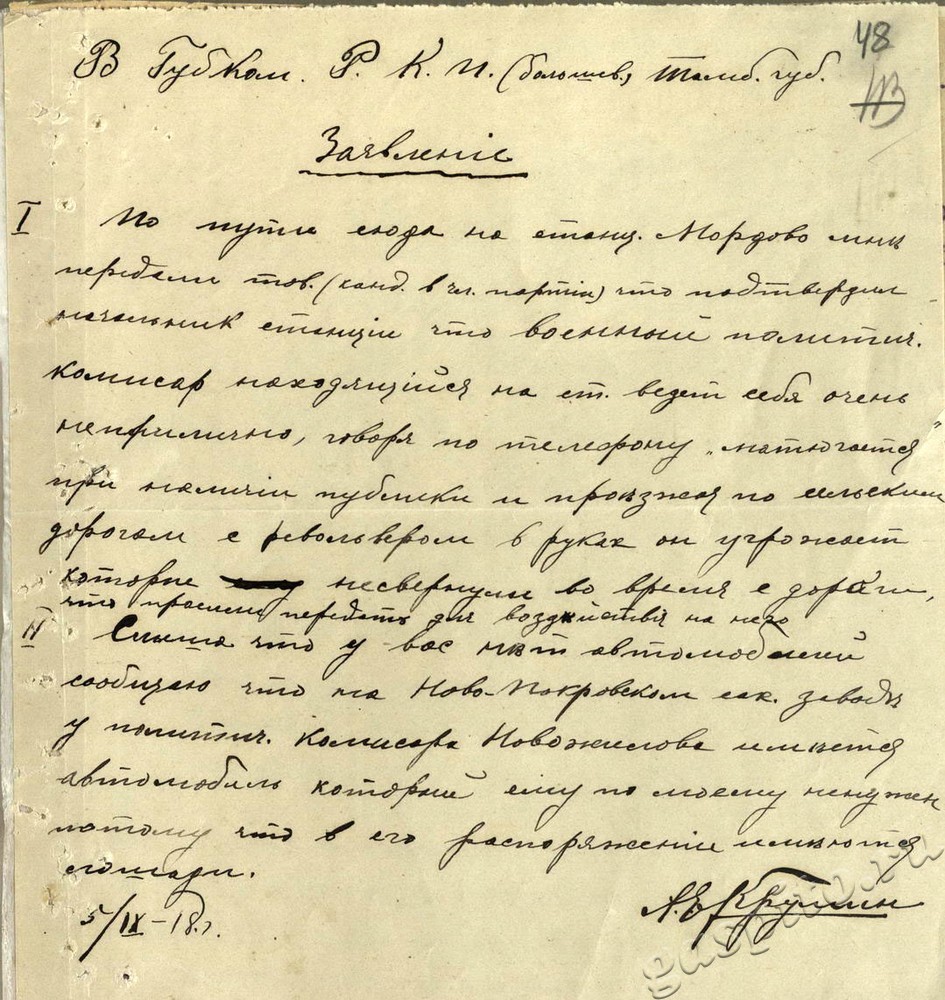 48
В Губком. Р. К. П. (большев.) Тамб. губ.
Заявленіе
I По пути сюда на станц. Мордово мнѣ
передали тов. (канд. в чл. партіи) что подтвердил
начальник станціи что военный политич.
комисар находящійся на ст. ведет себя очень
неприлично, говоря по телефону „матюгается"
при наличіи публики и проѣзжая по сельским
дорогам с револьвером в руках он угрожает
которые несвернули во время с дороги,
что просили передать для воздѣйствія на него
II Слыша что у вас нѣт автомобилей
сообщаю что на Ново-Покровском сах. заводѣ
у политич. комисара Новожилова имѣется
автомобиль который ему по моему ненужен
потому что в его распоряженіи имѣются
лошади.
5/IX-18 г.
А. Е. Крумин